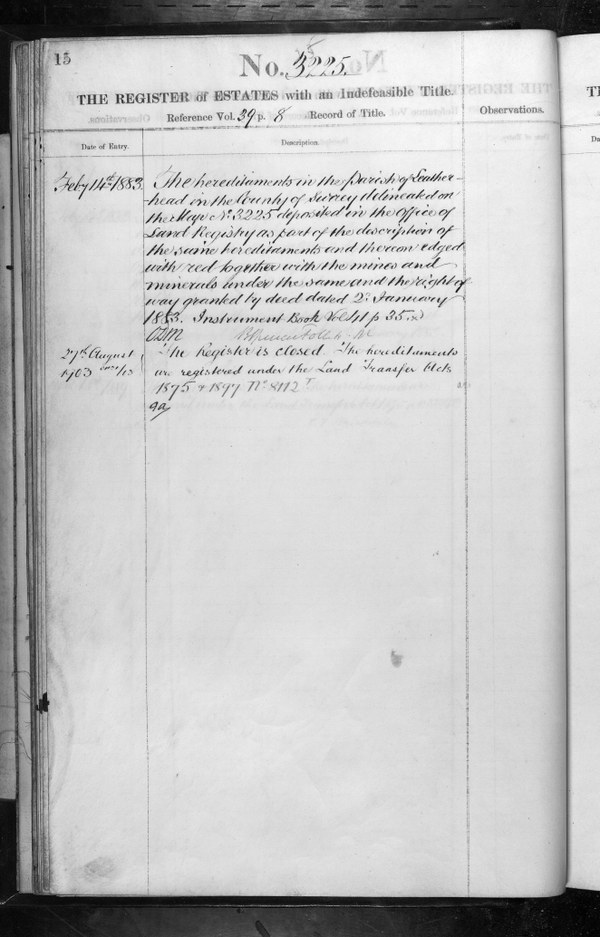 15
No. 3225.
THE REGISTER of ESTATES with an Indefeasible Title.
Reference Vol. 39 p. 8 Record of Title.
Observations.
Date of Entry.
Description.
Feby 14th 1883.
The hereditaments in the Parish of Leather-
-head in the County of Surrey delineated on
the Map No. 3225 deposited in the Office of
Land Registry as part of the description of
the same hereditaments and thereon edged
with red together with the mines and
minerals under the same and the right of
way granted by deed dated 2d January
1883. Instrument Book Vol. 41 p 35
27th August
1903
The Register is closed. The hereditaments
are registered under the Land Transfer Acts
1875 & 1897 No. 8112